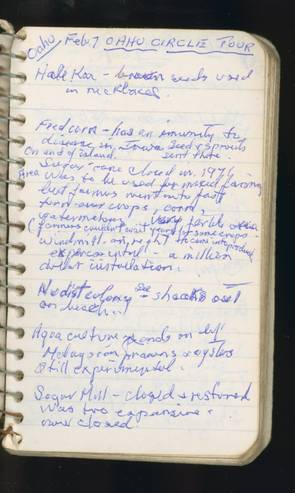 Oahu Feb 7 OAHU CIRCLE TOUR
Hale Koa - brown seeds used
in necklaces.
Feed corn - has an immunity to
disease in Iowa seed & sprouts
On end of island. sent there.
Sugar cane closed in 1976 -
Area was to be used for mixed farming
but farms went into fast
turn over crops - corn,
watermelons - very fertile
(farmers couldn't wait years for some crops
windmill on right to come into produc
experimental - a million
dollar installation.
Nudist colony - shacks out
on beach..
Aqua culture ponds on left
prawns & oysters
still experimental.
Sugar Mill - closed & restored
was too expansive.
now closed